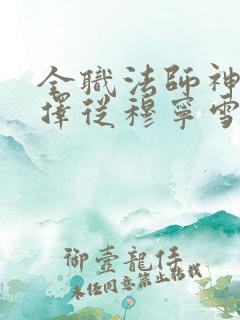 全職法師神
擇從穆寧雪
御壹龍任
未任同意禁止轉載